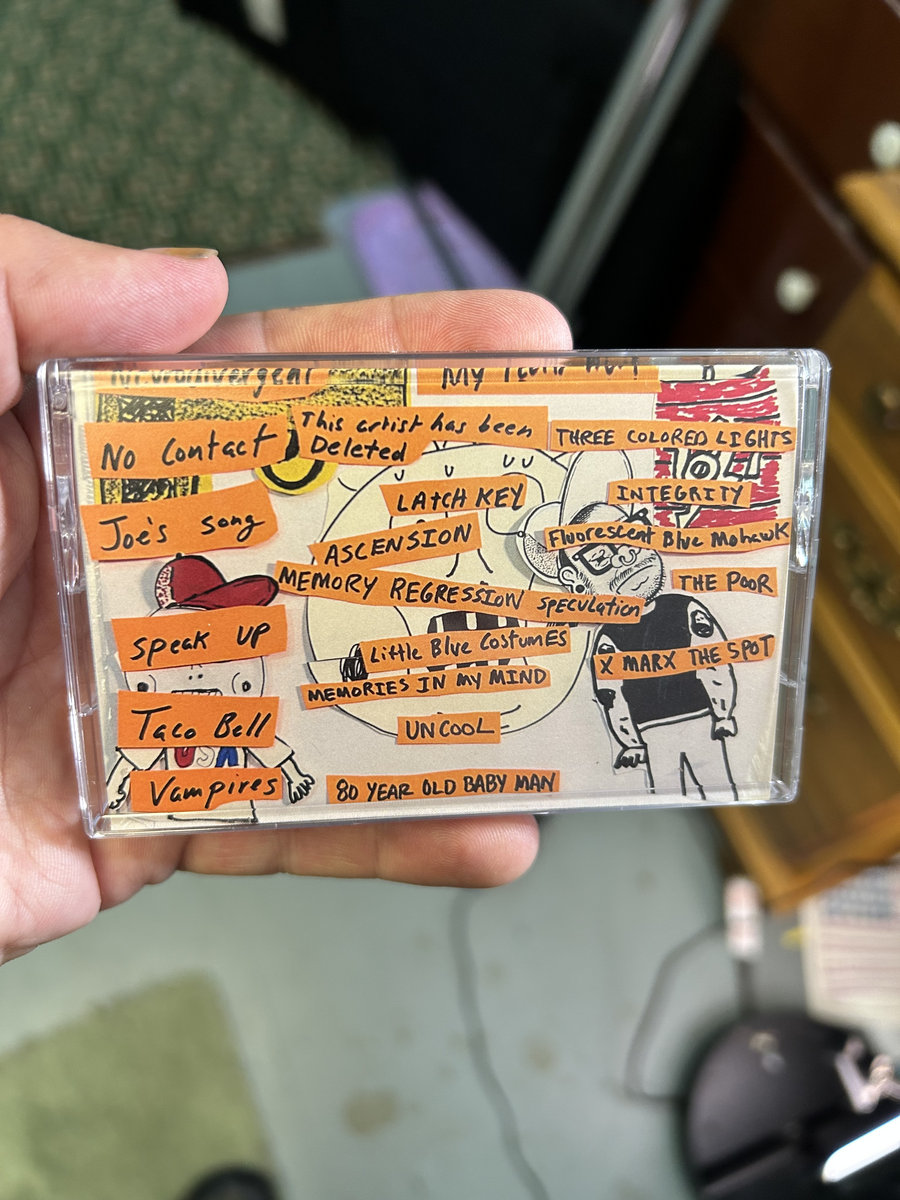 Neurodivergent
My
No Contact
Joe's song
Speak UP
Taco Bell
USA
Vampires
This artist has been
Deleted
LATCH KEY
ASCENSION
MEMORY REGRESSION SPECULATION
Little Blue COSTUMES
MEMORIES IN MY MIND
UNCOOL
80 YEAR OLD BABY MAN
THREE COLORED LIGHTS
INTEGRITY
Fluorescent Blue Mohawk
THE POOR
X MARX THE SPOT